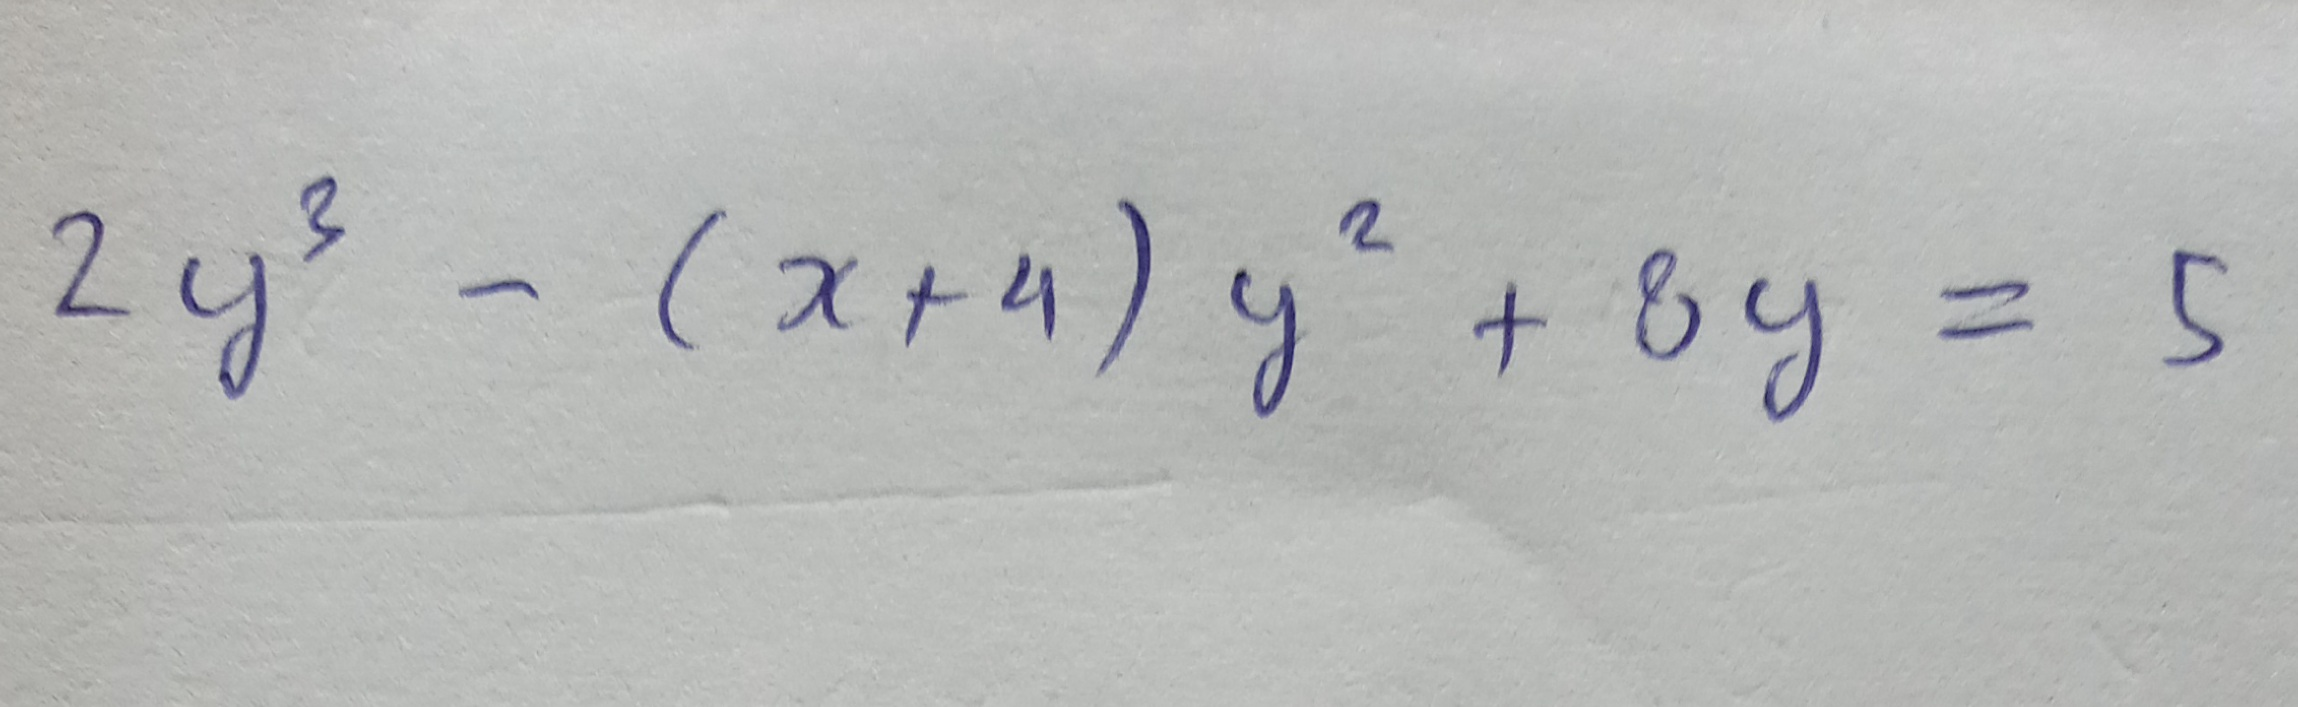 2y³ - (x+4) y² + 8y = 5